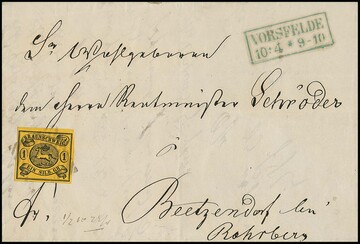 VORSFELDE
10·4 * 9-10
Sr Wohlgeboren
dem Herrn Rentmeister Schröder
à
BRAUNSCHWEIG
1 1
EIN SILB. GR.
Fr.
Beetzendorf bei
Rohrberg